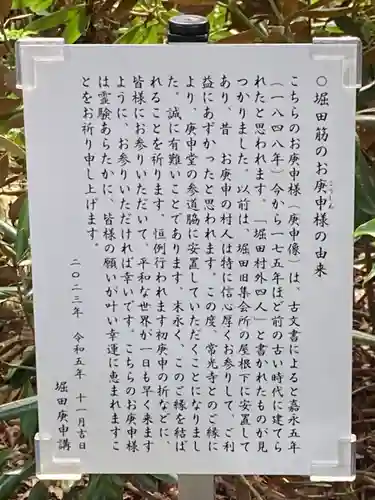 〇堀田筋のお庚申様の由来
こうしん
こちらのお庚申様(庚申像)は、古文書によると嘉永五年
(一八四八年)今から一七五年ほど前の古い時代に建てら
れたと思われます。「堀田村外四人」と書かれたものが見
つかりました。以前は、堀田旧集会所の屋根下に安置して
あり、昔 お庚申の村人は特に信心厚くお参りして、ご利
益にあずかったと思われます。この度、常光寺とのご縁に
より、庚申堂の参道脇に安置していただくことになりまし
た。誠に有難いことであります。末永く、このご縁を結ば
れることを祈ります。恒例行われます初庚申の折などに、
皆様にお参りいただいて、平和な世界が一日も早く来ます
ように、お参りいただければ幸いです。こちらのお庚申様
は霊験あらたかに、皆様の願いが叶い幸運に恵まれますこ
とをお祈り申し上げます。
二〇二三年 令和五年 十一月吉日
堀田庚申講